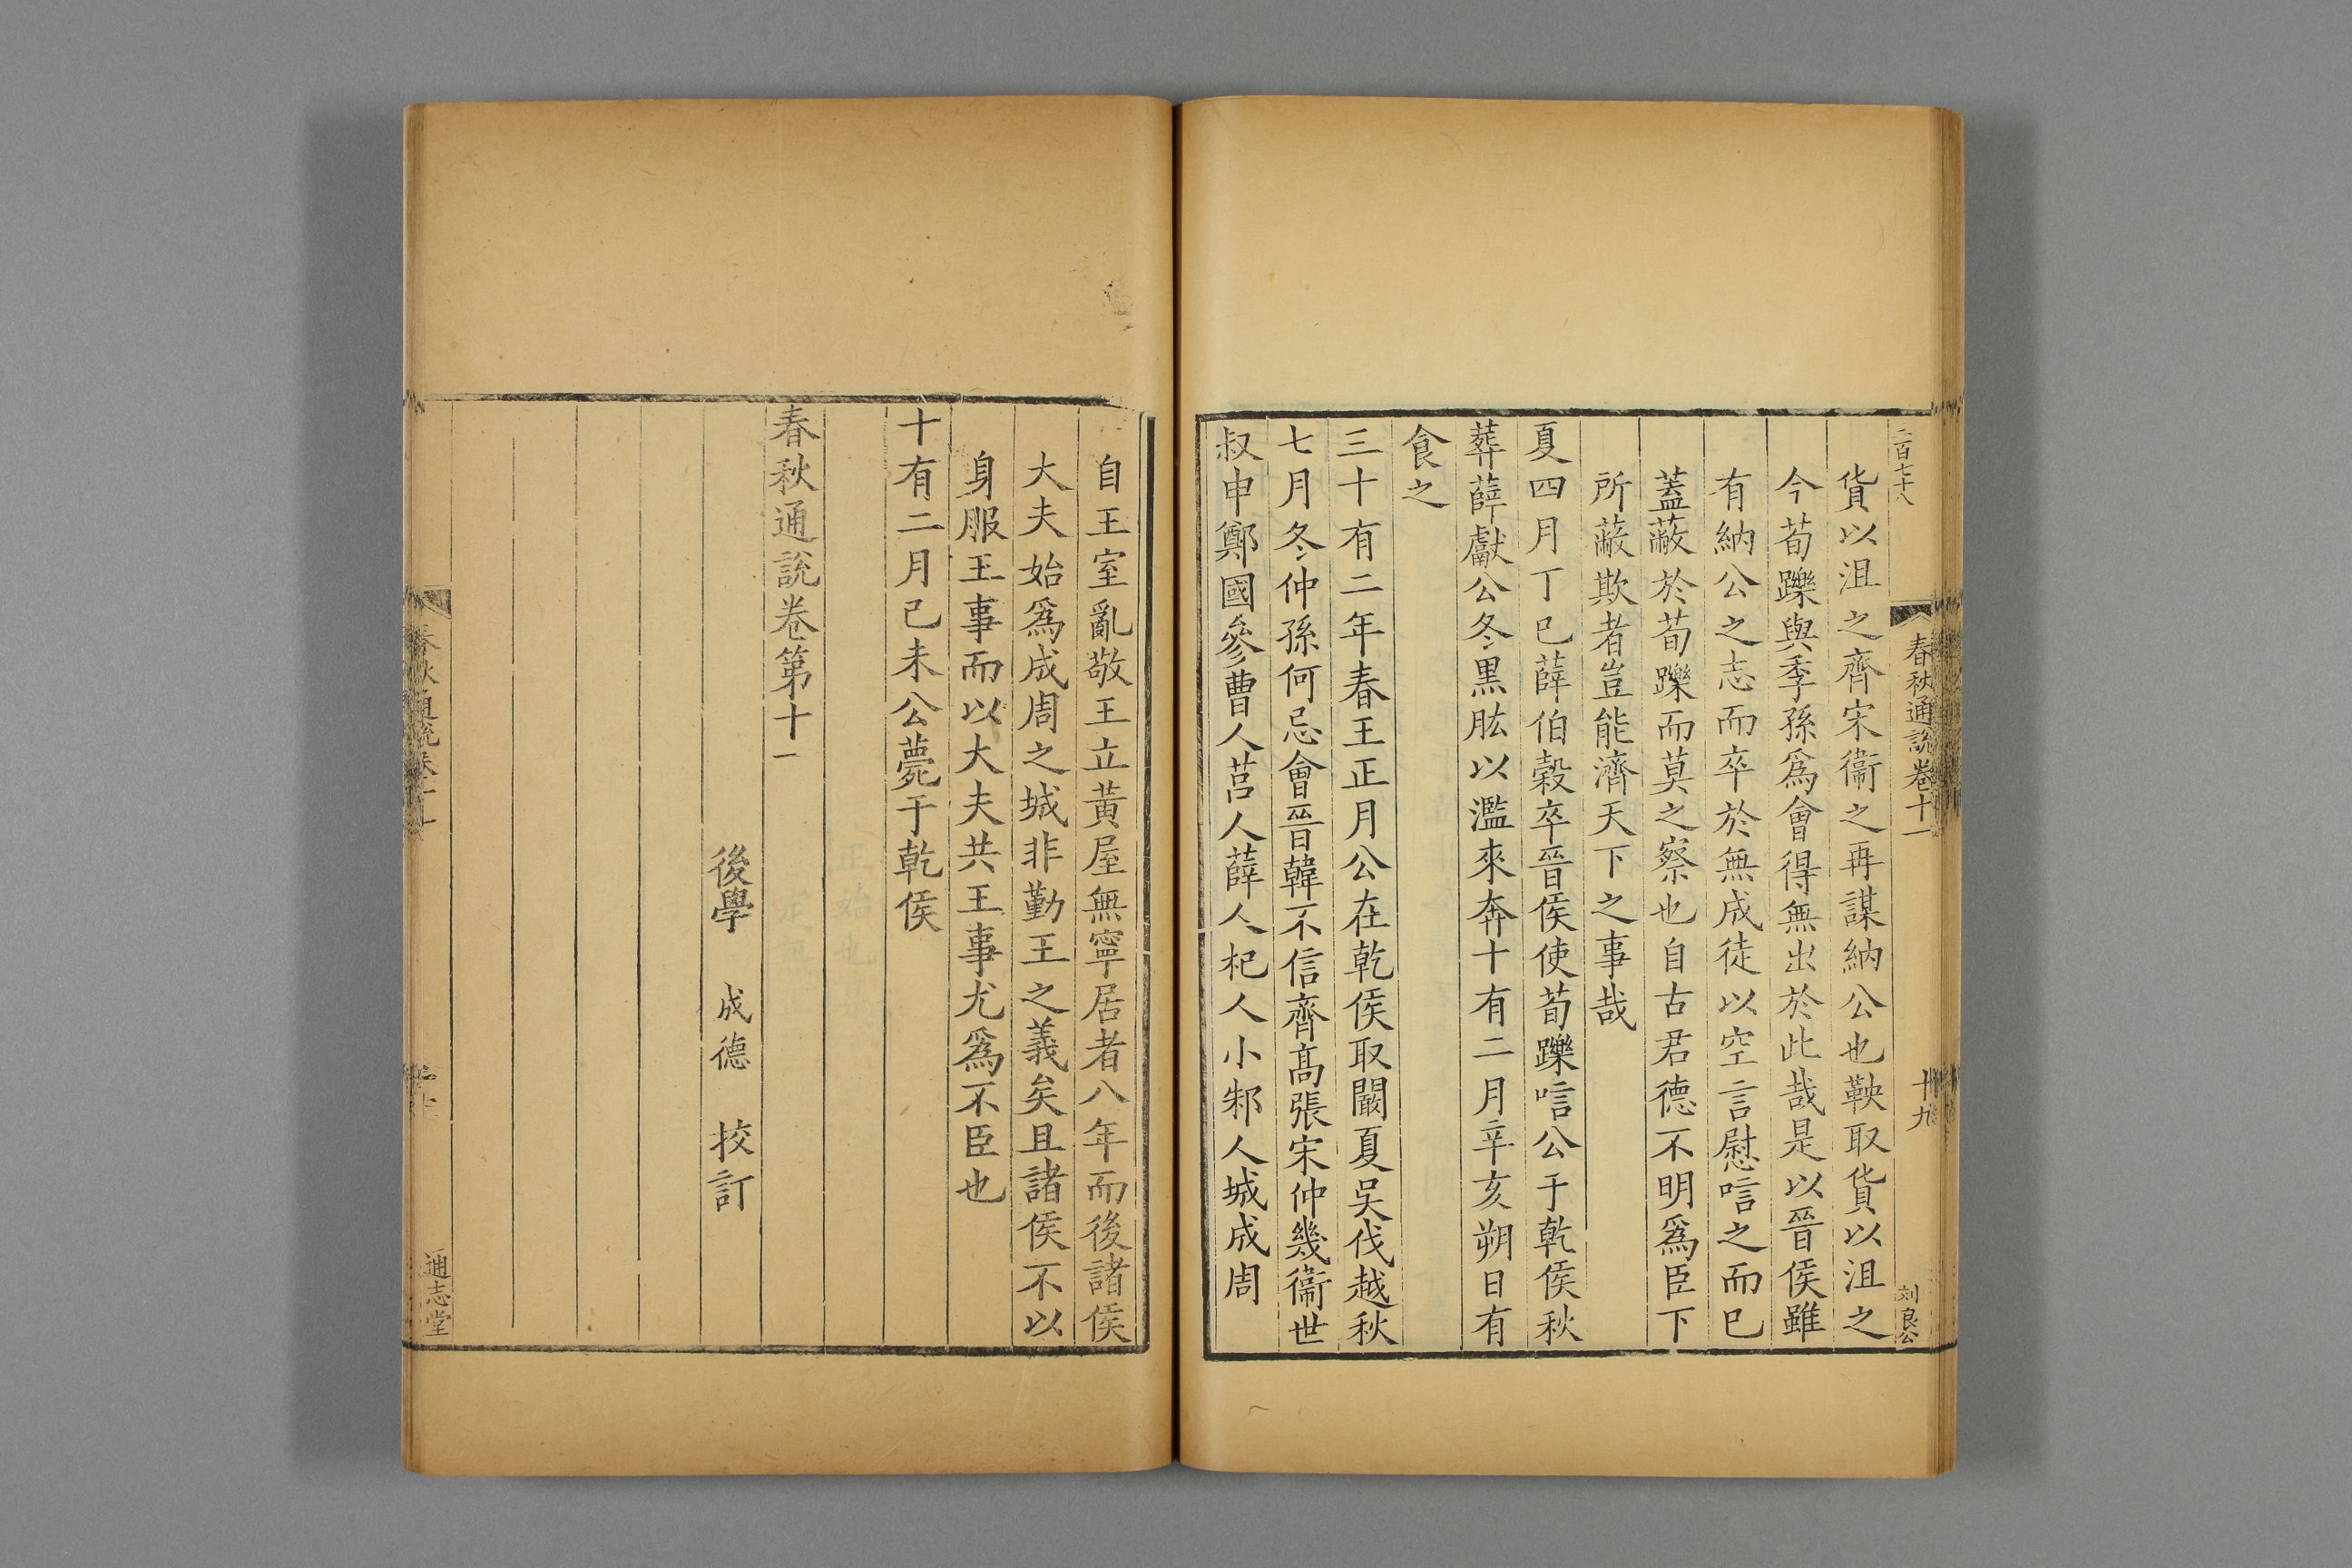 二百七十八
春秋通說卷十一
十九
刘良公
貨以沮之齊宋衞之再謀納公也鞅取貨以沮之
今荀躒與季孫爲會得無出於此哉是以晉侯雖
有納公之志而卒於無成徒以空言慰唁之而已
蓋蔽於荀躒而莫之察也自古君德不明爲臣下
所蔽欺者豈能濟天下之事哉
夏四月丁巳薛伯穀卒晉侯使荀躒唁公于乾侯秋
葬薛獻公冬黒肱以濫來奔十有二月辛亥朔日有
食之
三十有二年春王正月公在乾侯取闞夏吴伐越秋
七月冬仲孫何忌會晉韓不信齊髙張宋仲幾衞世
叔申鄭國參曹人莒人薛人杞人小邾人城成周
自王室亂敬王立黃屋無寧居者八年而後諸侯
大夫始爲成周之城非勤王之義矣且諸侯不以
身服王事而以大夫共王事尤爲不臣也
十有二月己未公薨于乾侯
春秋通說卷第十一
後學 成德 挍訂
通志堂